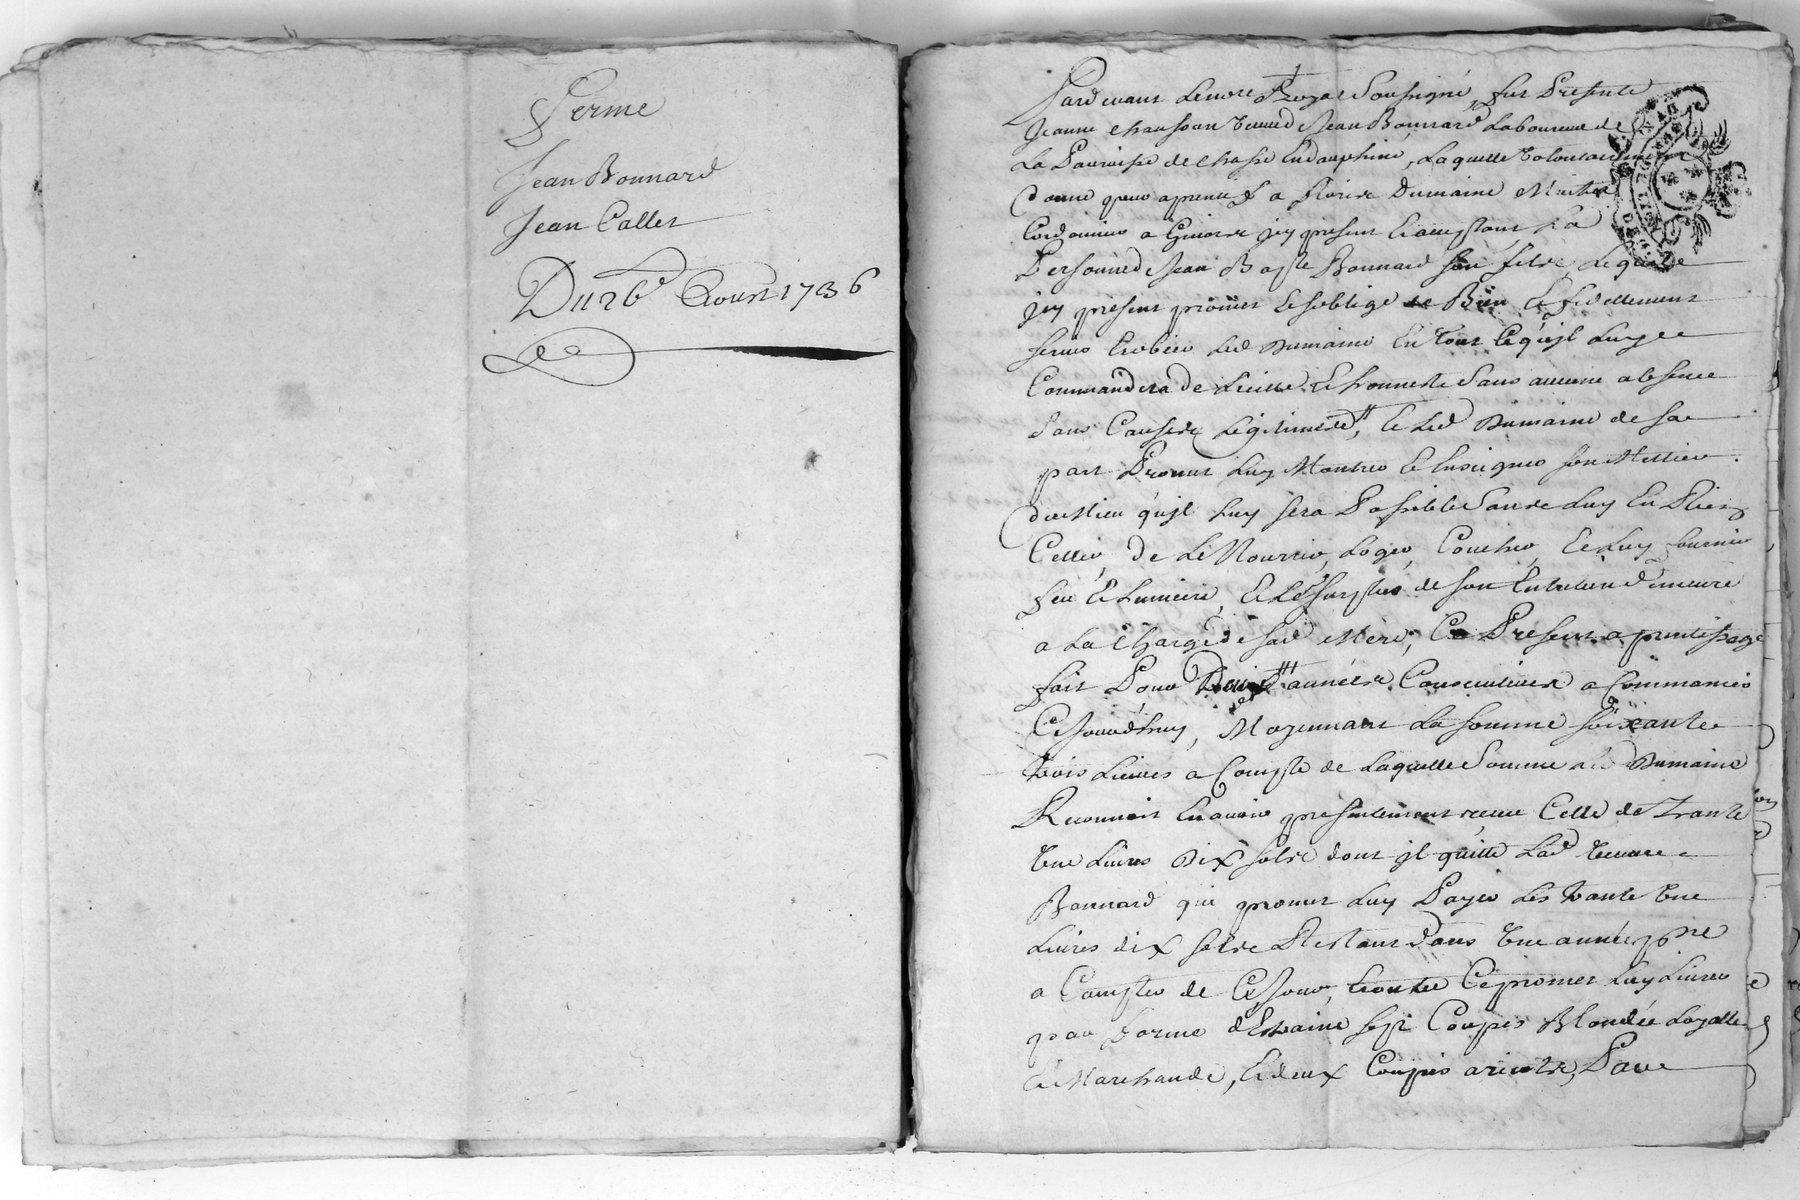 Ferme
Jean Bonnard
Jean Callet
Du 26e Aoust 1736
Pardevant le nore Royal Soussigné, fut Presente
Jeanne chanson veuve de Jean Bonnard Laboureur de
La Parroisse de chasse en dauphiné, Laquelle volontairement
donne pour aprentif a Pierre Dumaine Maitre
Cordonnier a Givors jcy present Et acceptant La
Personne de Jean Bapte Bonnard son fils, Lequel
jcy present promet Et soblige de Bien Et fidellement
servir Et obeir Led Dumaine En tout Cé qujl Luy
Commandera de Licitte Et honneste Sans aucune absence
Sans Cause Légitime, Et Led Dumaine de sa
part Promet Luy Montrer Et Enseigner Son Mettier
du Mieu qujl Luy sera Possible Sans Luy En Rien
Celler, de Lé Nourrir, Loger, Coucher, Et Luy fournir
feu Et Lumiere, Et Lé surplus de son Entretien demeure
a La charge de sad Mere, Cé Present aprentissage
fait Pour années Consecutives a Commancer
Cé Jourdhuy, Moyennant La somme soixante
trois Livres a Compte de Laquelle Somme Led Dumaine
Reconnoit En avoir presentement receu Celle de Trante
une Livres Dix sols dont jl quitte Lad veuve
Bonnard qui promet Luy Payer Les trante une
Livres dix sols Restant dans une année
a Compter de Cé Jour, Et promet Luy Livrer
pour Sept Coupes Blondée Loyalle
Et Marchande, Et deux Coupes Pour